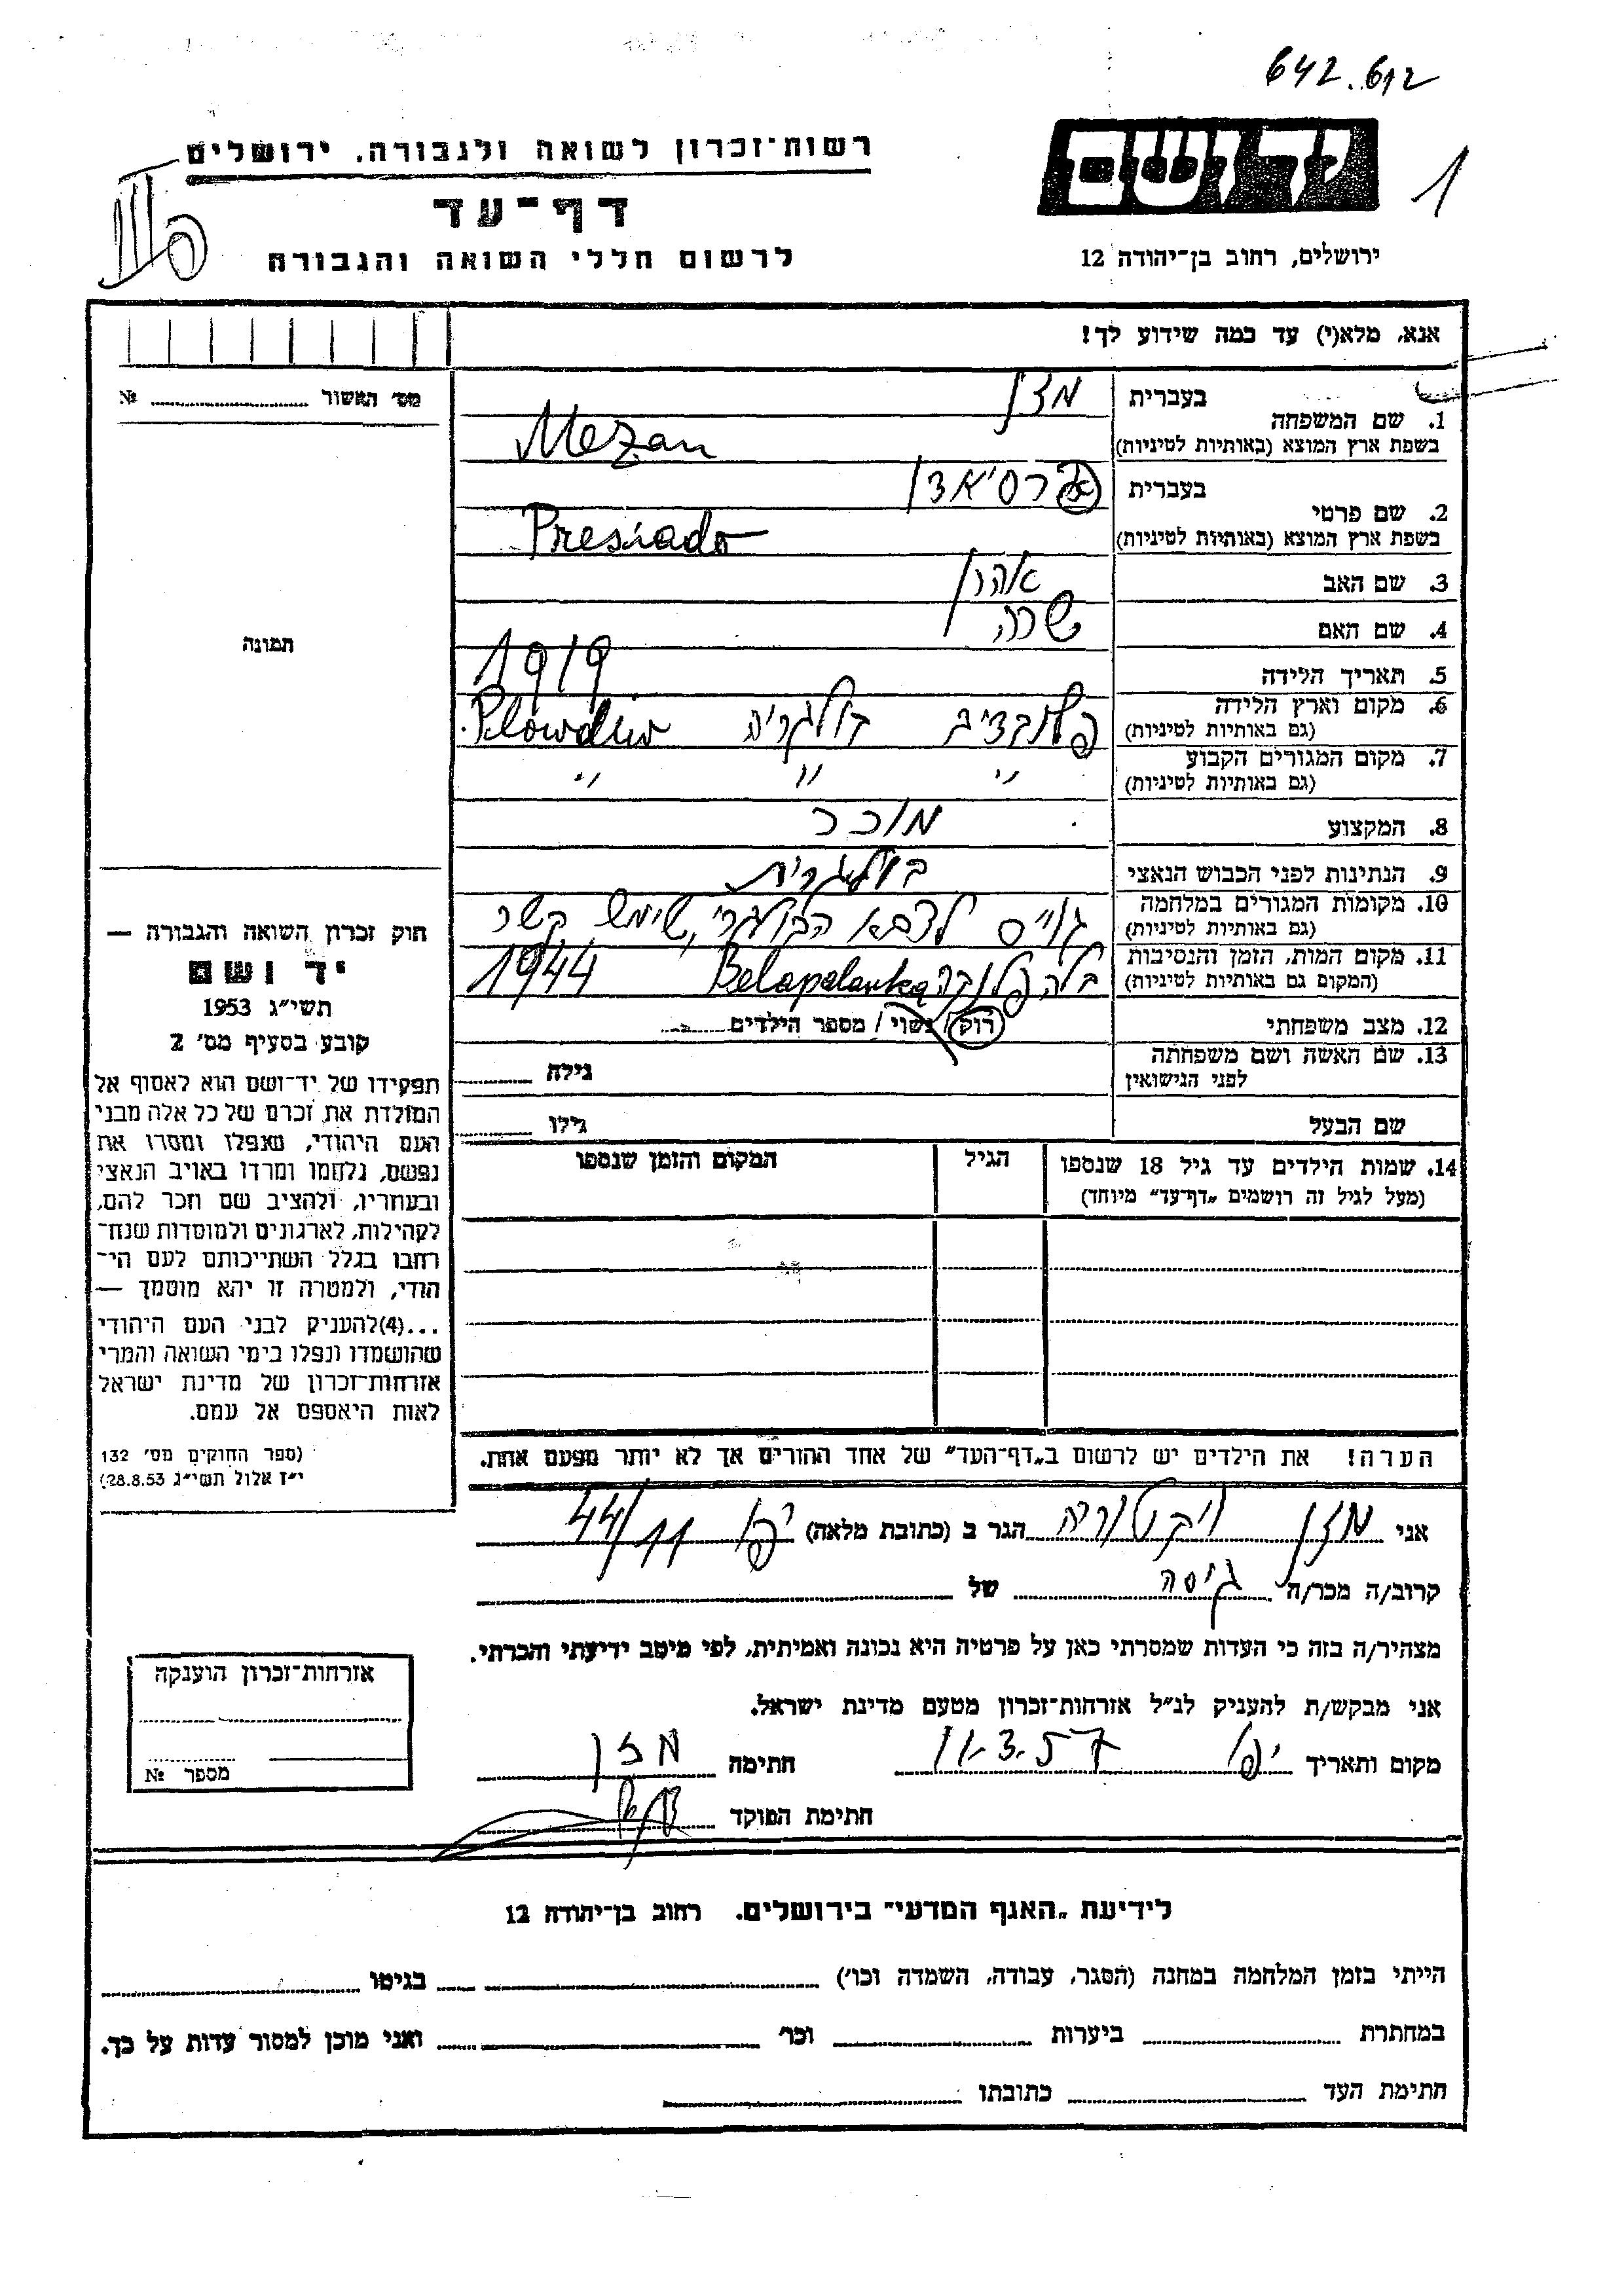 642.612
יד ושם
1
רשות-זכרון לשואה ולגבורה, ירושלים
דף-עד
לרשום חללי השואה והגבורה
ירושלים, רחוב בן-יהודה 12
אנא, מלא(י) עד כמה שידוע לך!
מס' האשור № 
בעברית מזן
1. שם המשפחה
בשפת ארץ המוצא (באותיות לטיניות) Mezan
בעברית פרסיאדו
2. שם פרטי
בשפת ארץ המוצא (באותיות לטיניות) Presiado
3. שם האב אהרן
4. שם האם שרה
5. תאריך הלידה 1919
6. מקום וארץ הלידה
(גם באותיות לטיניות) פלובדיב בולגריה Plowdiw
7. מקום המגורים הקבוע
(גם באותיות לטיניות) " " "
8. המקצוע מוכר
9. הנתינות לפני הכבוש הנאצי בולגרית
10. מקומות המגורים במלחמה
(גם באותיות לטיניות) גוייס לצבא הבולגרי, שימש קשר
11. מקום המות, הזמן והנסיבות
(המקום גם באותיות לטיניות) בלה פלנקה Belapalanka 1944
12. מצב משפחתי רוק / נשוי / מספר הילדים
13. שם האשה ושם משפחתה
לפני הנישואין גילה
שם הבעל גילו
14. שמות הילדים עד גיל 18 שנספו הגיל המקום והזמן שנספו
(מעל לגיל זה רושמים "דף-עד" מיוחד)
הערה! את הילדים יש לרשום ב"דף-העד" של אחד ההורים אך לא יותר מפעם אחת.
תמונה
חוק זכרון השואה והגבורה —
יד ושם
תשי"ג 1953
קובע בסעיף מס' 2
תפקידו של יד-ושם הוא לאסוף אל
המולדת את זכרם של כל אלה מבני
העם היהודי, שנפלו ומסרו את
נפשם, נלחמו ומרדו באויב הנאצי
ובעוזריו, ולהציב שם וזכר להם,
לקהילות, לארגונים ולמוסדות שנח-
רחבו בגלל השתייכותם לעם הי-
הודי, ולמטרה זו יהא מוסמך —
...(4)להעניק לבני העם היהודי
שהושמדו ונפלו בימי השואה והמרי
אזרחות-זכרון של מדינת ישראל
לאות היאספם אל עמם.
(ספר החוקים מס' 132
י"ז אלול תשי"ג 28.8.53)
אני מזן ויקטוריה הגר ב (כתובת מלאה) יפו 44/11
קרוב/ה מכר/ה גיסה של
מצהיר/ה בזה כי העדות שמסרתי כאן על פרטיה היא נכונה ואמיתית, לפי מיטב ידיעתי והכרתי.
אני מבקש/ת להעניק לנ"ל אזרחות-זכרון מטעם מדינת ישראל.
מקום ותאריך יפו 11.3.57 חתימה מזן
חתימת הפוקד
אזרחות-זכרון הוענקה
מספר №
לידיעת "האגף המדעי" בירושלים. רחוב בן-יהודה 12
הייתי בזמן המלחמה במחנה (הסגר, עבודה, השמדה וכו') בגיטו
במחתרת ביערות וכו' ואני מוכן למסור עדות על כך.
חתימת העד כתובתו